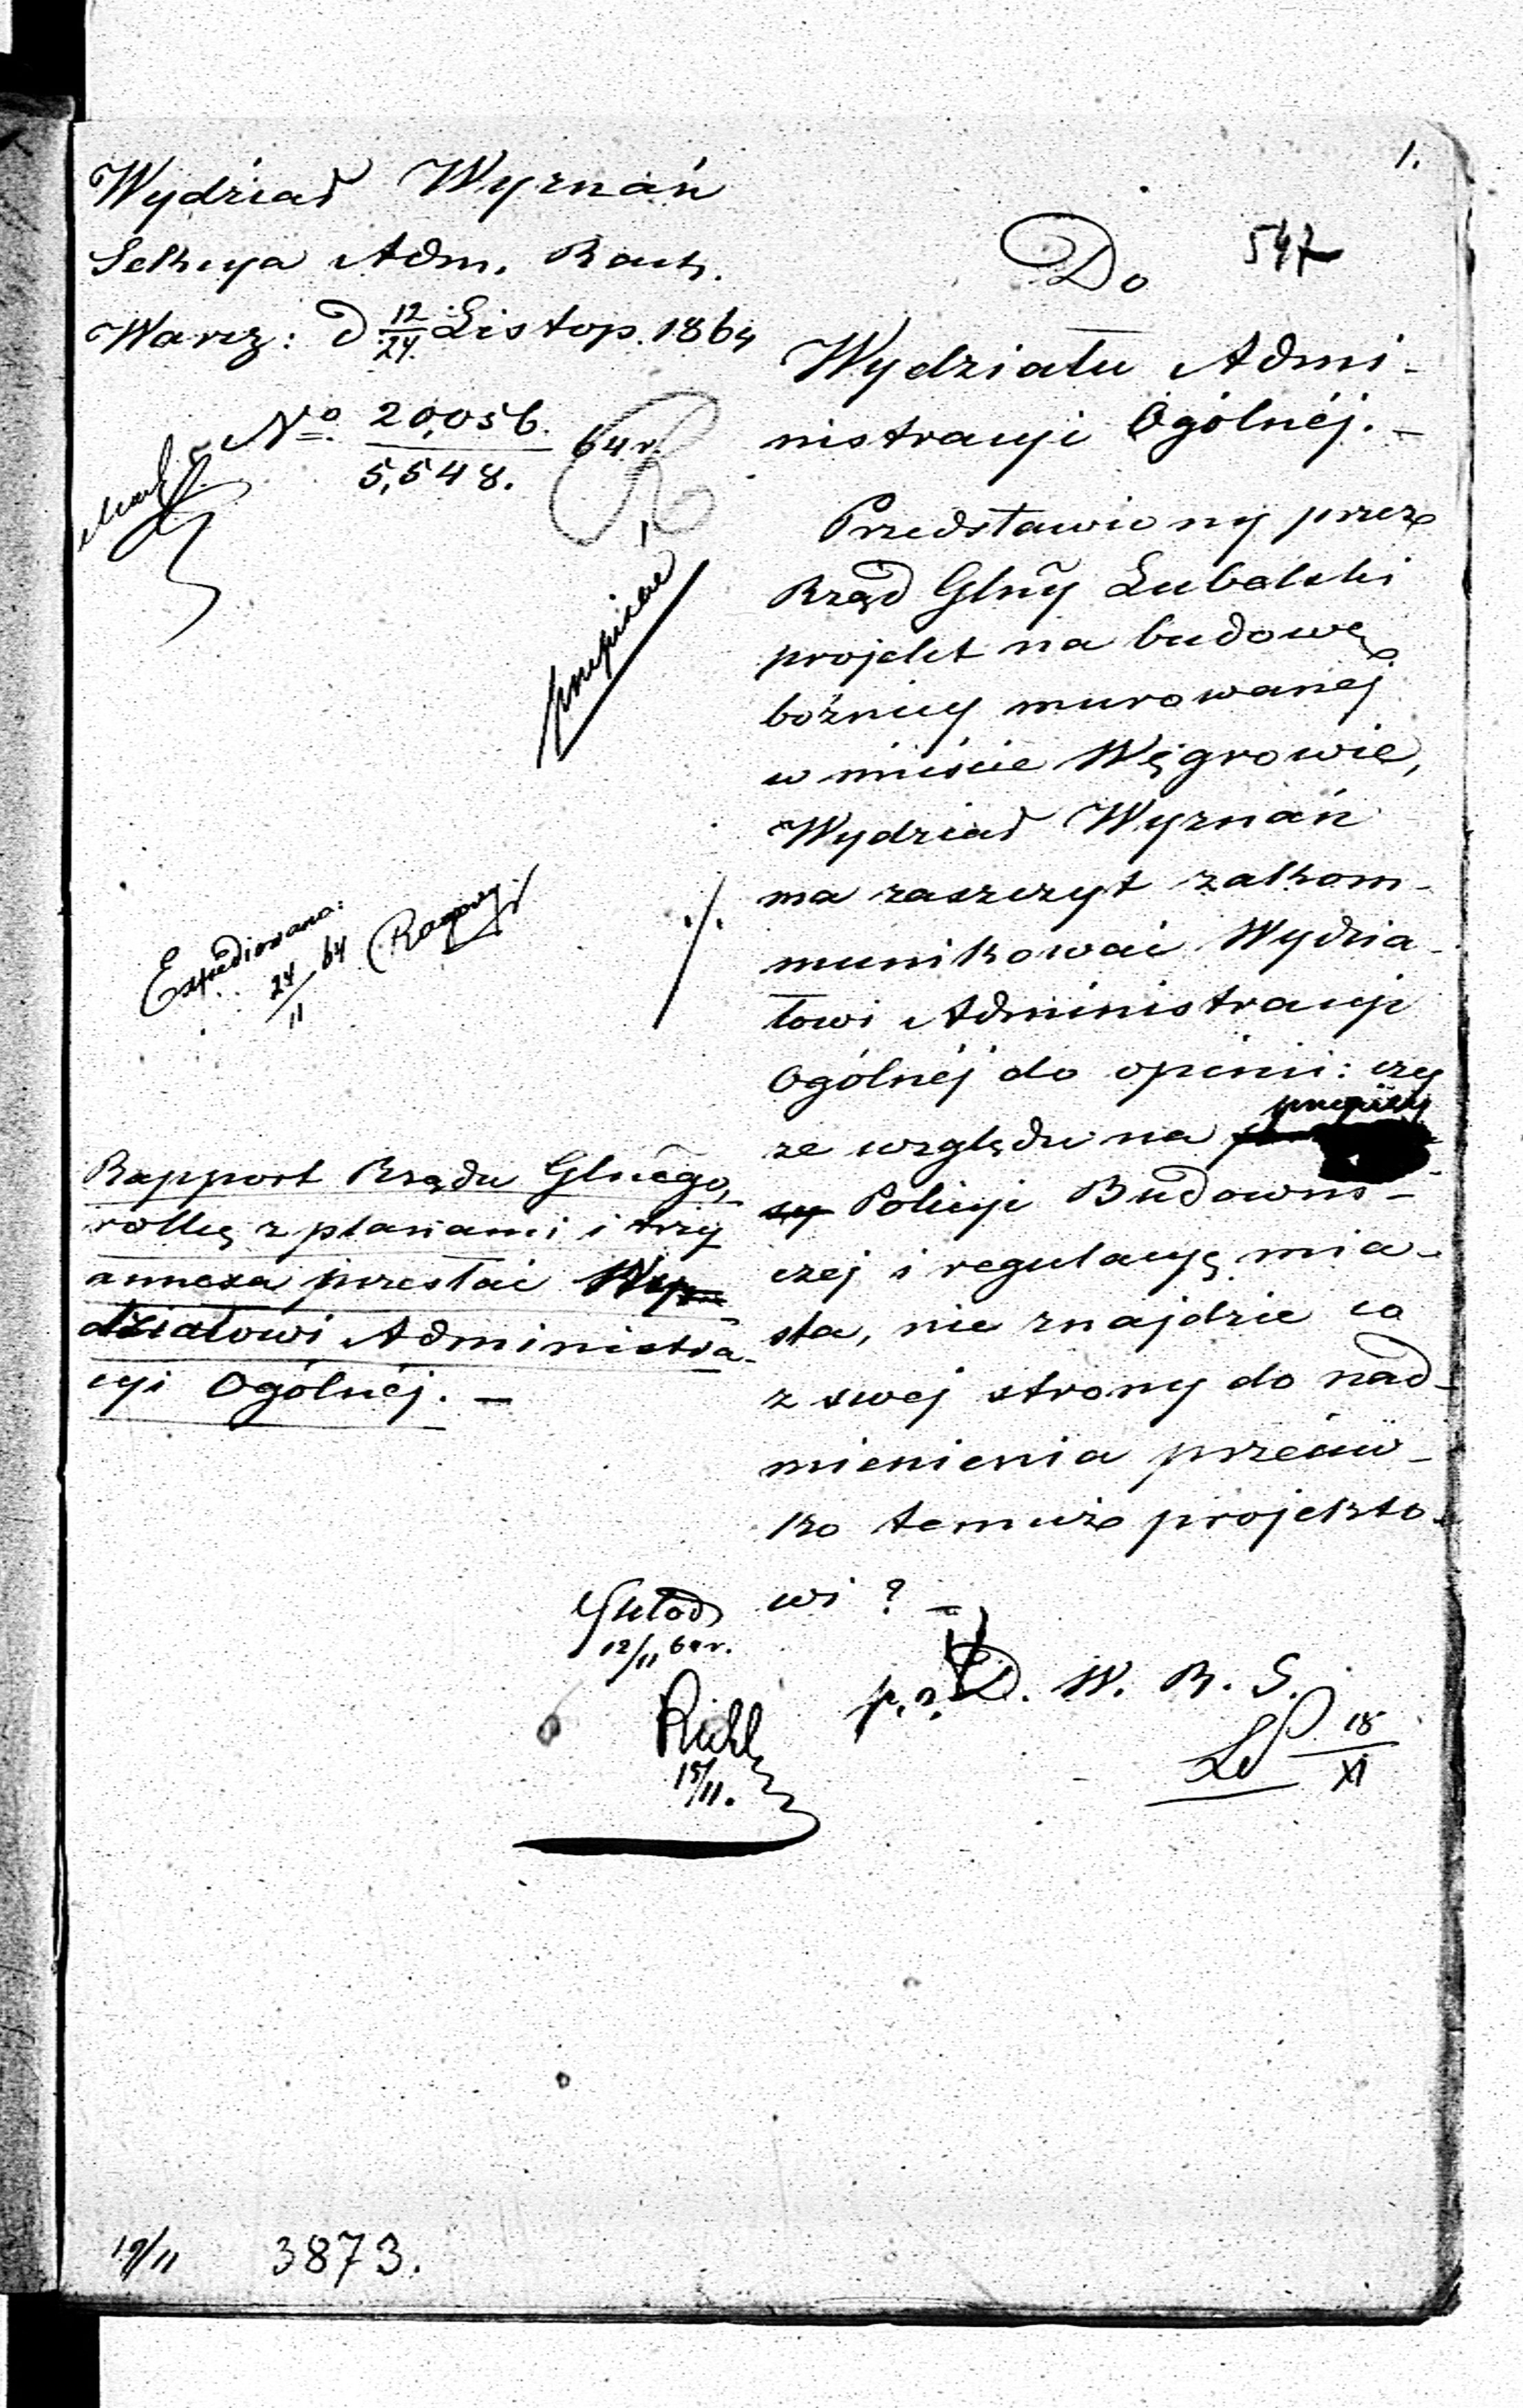 1.
547
Wydział Wyznań
Sekcya Adm. Rach.
Warsz: d 12/24 Listop. 1864
No 20,056. / 5,548. 64 r.
Expediowano:
24/11 64
Rapport Rządu Glnego,
rollę z planami i trzy
annexa przesłać Wy-
działowi Administra-
cyi Ogólnéj. –
Do
Wydziału Admi-
nistracyi Ogólnéj. –
Przedstawiony przez
Rząd Glny Lubelski
projekt na budowę
bóżnicy murowanej
w mieście Węgrowie,
Wydział Wyznań
ma zaszczyt zakom-
munikować Wydzia-
łowi Administracyi
Ogólnéj do opinii: czy
ze względu na przepisy
sy Policyi Budowni-
czej i regulacyę mia-
sta, nie znajdzie co
z swej strony do nad-
mienienia przeciw-
ko temuż projekto-
wi ? –
12/11 64 r.
15/11.
p. o. D. W. R. S.
18/XI
19/11 3873.